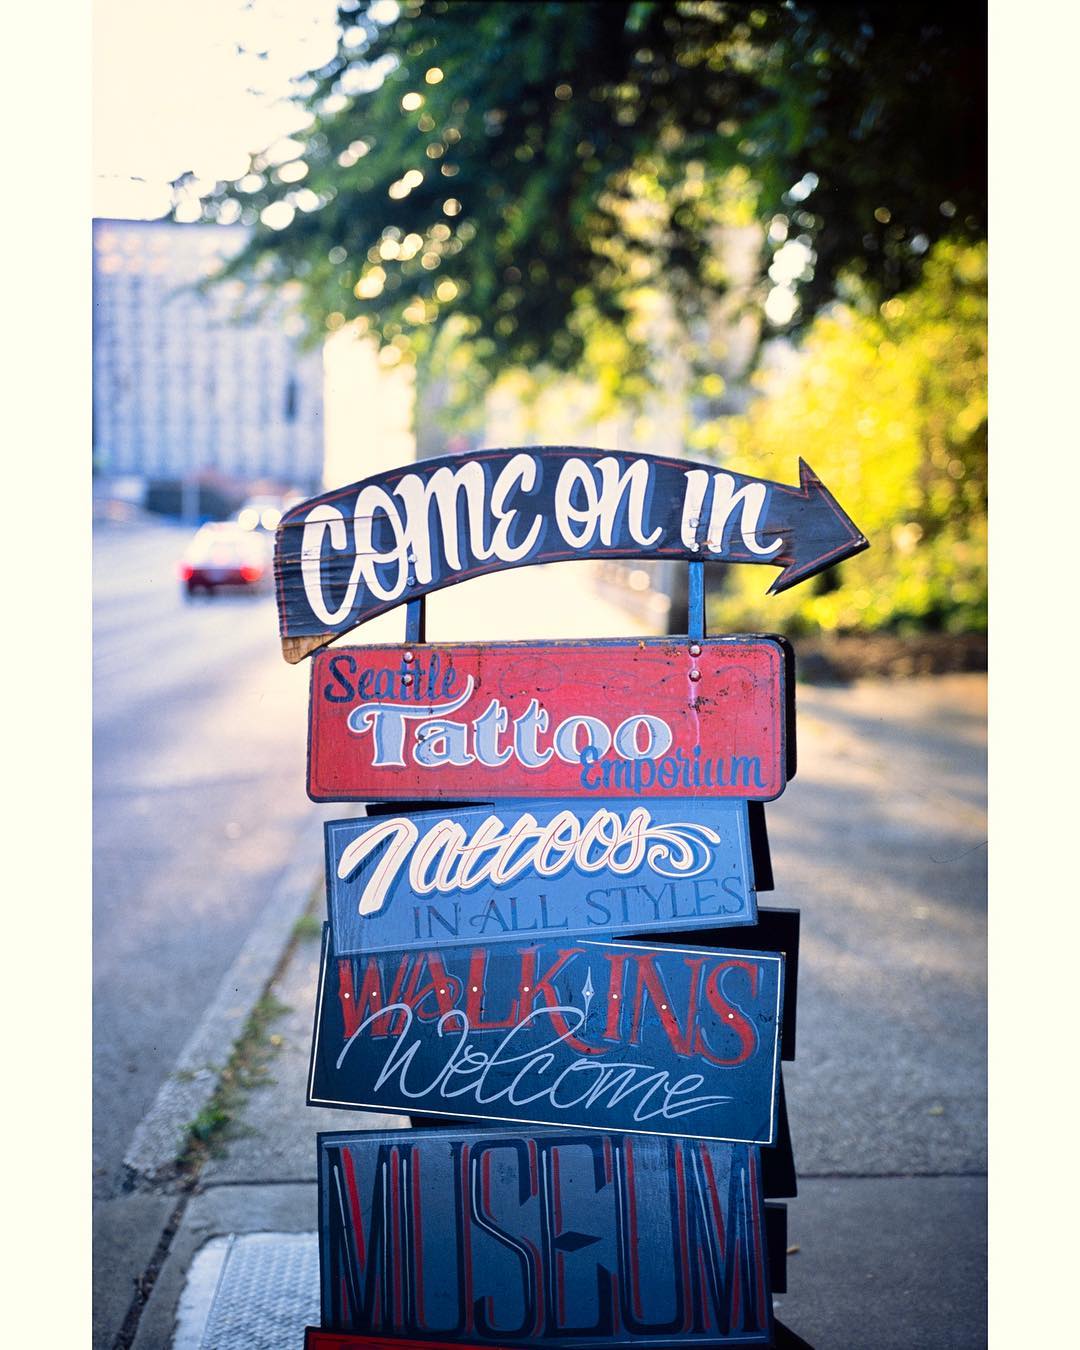 COME ON IN
Seattle
Tattoo
Emporium
Tattoos
IN ALL STYLES
WALK INS
Welcome
MUSEUM